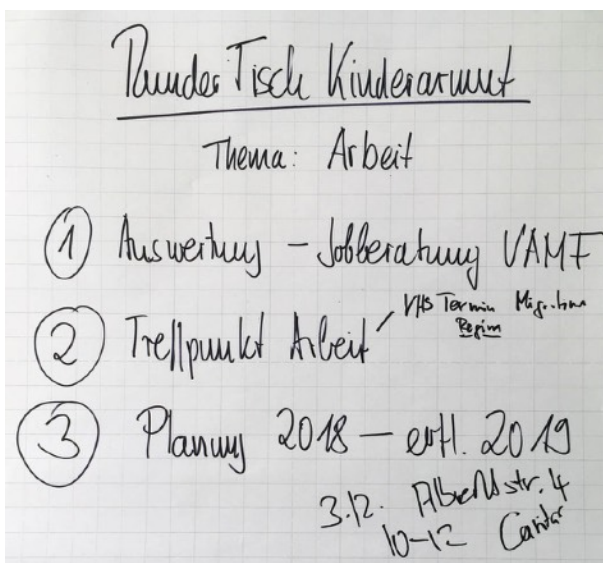 Runder Tisch Kinderarmut
Thema: Arbeit
1 Auswertung – Jobberatung VAMF
2 Treffpunkt Arbeit
VHS Termin
3 Planung 2018 – evtl. 2019
3.12. Albrechtstr. 4
10-12 Caritas